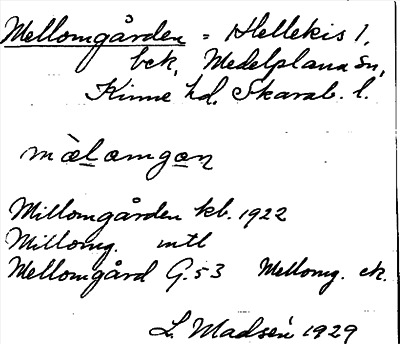 Mellomgården = Hellekis 1,
bek, Medelplana sn,
Kinne hd. Skarab. l.
mæ̀lo̲mgo̲n
Millomgården kb. 1922
Millomg. mtl
Mellomgård G. 53 Mellomg. ek.
L. Madsén 1929